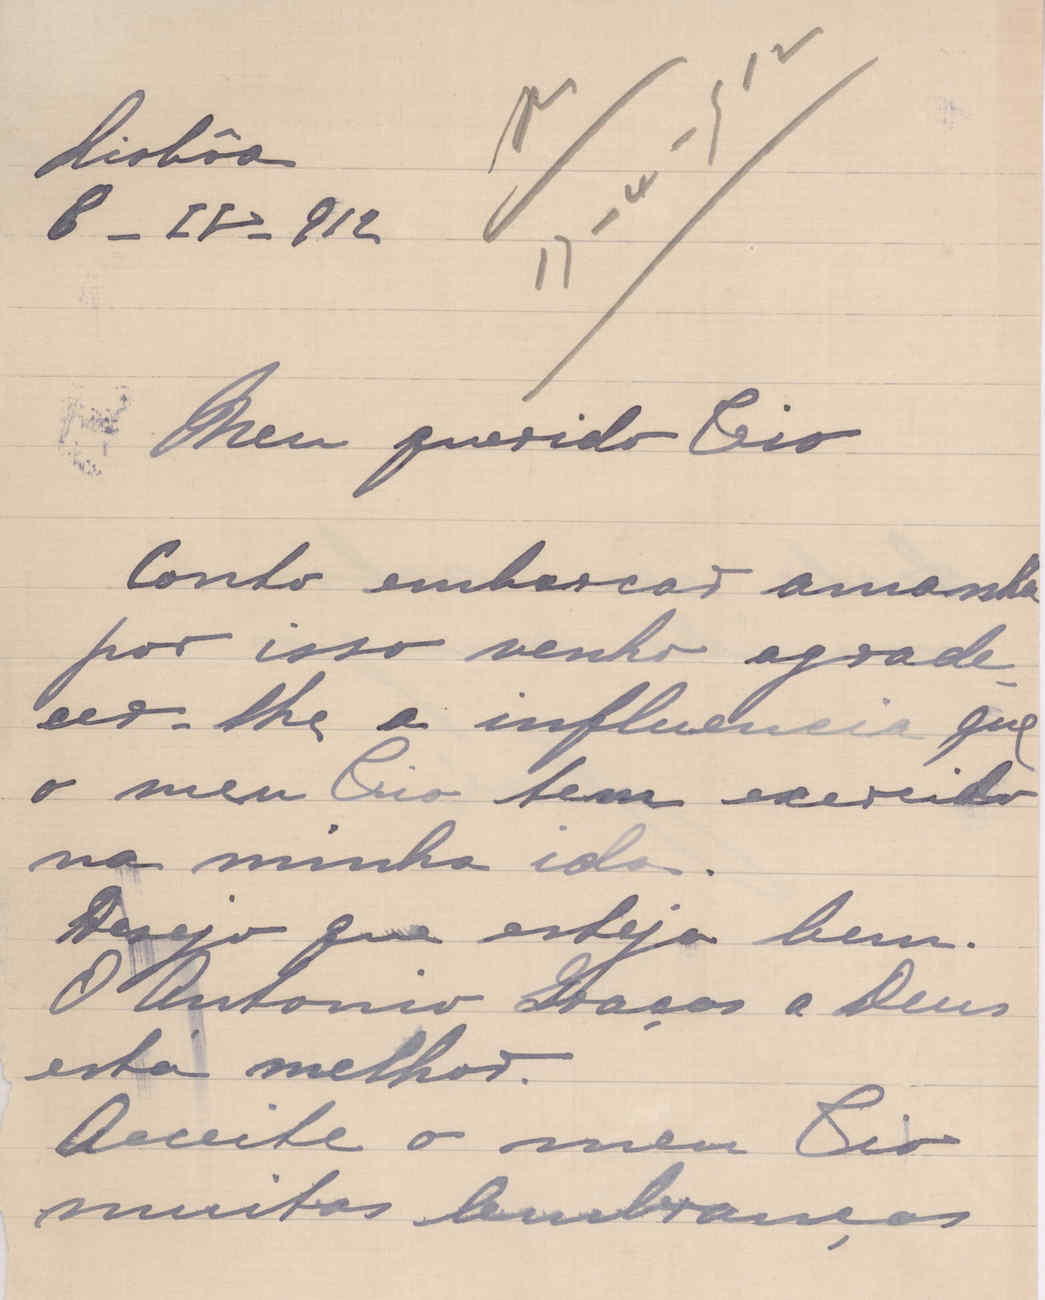 Lisbôa
8 - IV - 912
R
17 - 4 - 912
Meu querido Tio
Conto embarcar amanhã
por isso venho agrade-
cer-lhe a influencia que
o meu Tio tem exercido
na minha ida.
Desejo que esteja bem.
O Antonio Graças a Deus
está melhor.
Acceite o meu Tio
muitas lembranças